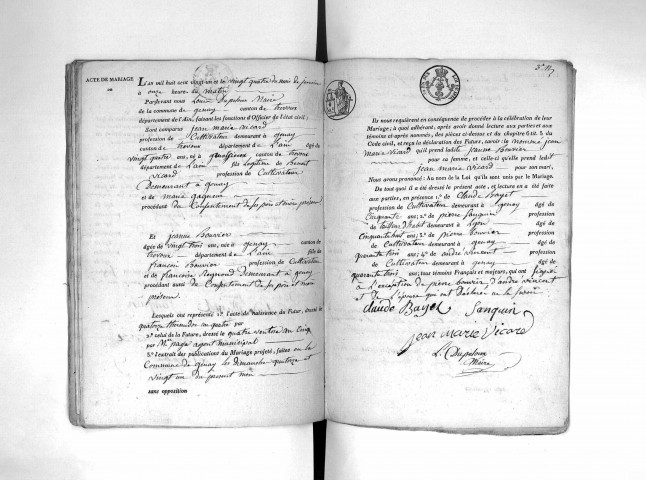 ACTE DE MARIAGE
L'AN mil huit cent vingt-un et le vingt quatre du mois de janvier
à onze heure du matin
Pardevant nous Louis Dupeloux Maire
de la commune de genay canton de trevoux
département de l'Ain, faisant les fonctions d'Officier de l'état civil;
Sont comparus jean marie vicard
profession de Cultivateur demeurant à genay
canton de trevoux département de L'ain âgé de
vingt quatre ans, né à canton de trevoux
département de L'ain fils légitime de Benoit
vicard profession de Cultivateur
Demeurant à genay
et de marie
procédant du Consentement de ses père et mère présens
Et jeanne Bouvier
âgée de vingt trois ans, née à genay canton de
trevoux département de L'ain fille de
françois Bouvier profession de Cultivateur
et de françoise Reymond demeurant à genay
procédant aussi du Consentement de ses père et mère
présens
Lesquels ont représenté 1.° l'acte de naissance du Futur, dressé le
quatorze thermidor an quatre par
2.° celui de la Future, dressé le quatre ventose an cinq
par Mr pape agent municipal
3.° l'extrait des publications du Mariage projeté, faites en la
Commune de genay les dimanches quatorze et
vingt un du présent mois
sans opposition
Ils nous requièrent en conséquence de procéder à la célébration de leur
Mariage; à quoi adhérant, après avoir donné lecture aux parties et aux
témoins ci-après nommés, des pièces ci-dessus et du chapitre 6 tit. 5 du
Code civil, et reçu la déclaration des Futurs, savoir le nommé jean
Marie Vicard qu'il prend ladite jeanne Bouvier
pour sa femme, et celle-ci qu'elle prend ledit
jean marie vicard pour son mari,
Nous avons prononcé: Au nom de la Loi qu'ils sont unis par le Mariage.
De tout quoi il a été dressé le présent acte, et lecture en a été faite
aux parties, en présence 1.° de Claude Bayet
profession de Cultivateur demeurant à genay âgé de
Cinquante ans; 2.° de pierre Sanguin profession
de tailleur d'habit demeurant à Lyon âgé de
Cinquante huit ans; 3.° de pierre bouvier profession
de Cultivateur demeurant à genay âgé de
quarante trois ans; 4.° de andré vincent profession
de Cultivateur demeurant à genay âgé de
quarante trois ans; tous témoins Français et majeurs, qui ont signé
à L'exception de pierre bouvier d'andré vincent
et de L'épouse qui ont déclaré ne le savoir
Claude Bayet Sanguin
Jean Marie Vicard
L. Dupeloux
Maire